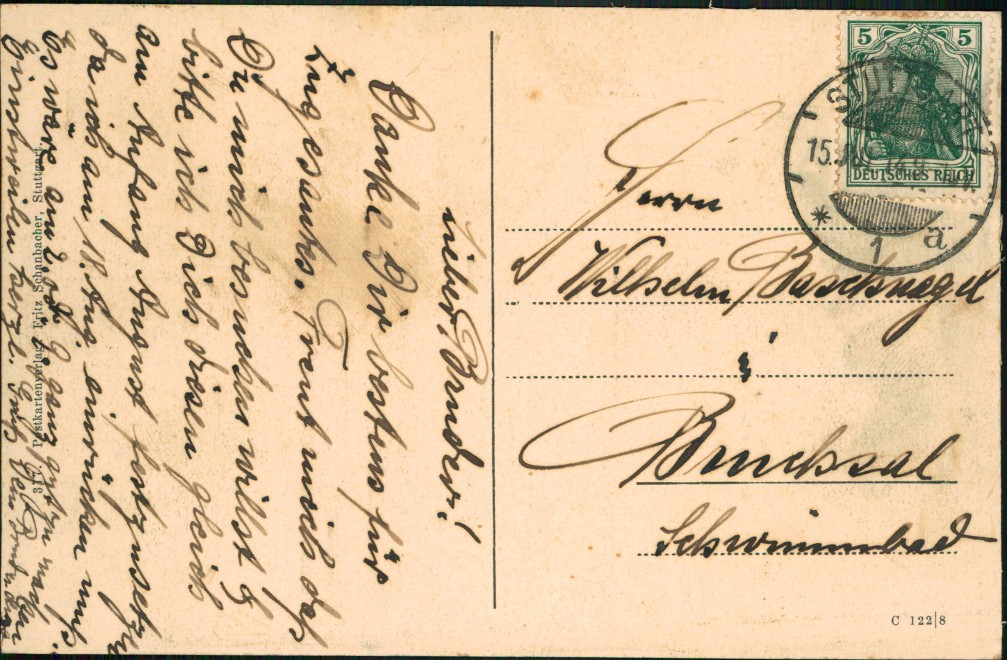 Lieber Bruder!
Danke Dir bestens für
Zugesandts. Freut mich daß
Du mich besuchen willst &
bitte ich Dich diesen gleich
an Anfang August festzusetzen
da ich am 18. Aug. einrücken muß.
Es wäre am 2. od. 9. ganz gut zu mach
Einstweilen herzl. Gruß Dein Bruder
317. Postkartenverlag Fritz Schanbacher, Stuttgart.
5 5
DEUTSCHES REICH
STUTTGART
15.
* 1 a
Herrn
Wilhelm Baschnagel
i
Bruchsal
Schwimmbad
C 122|8